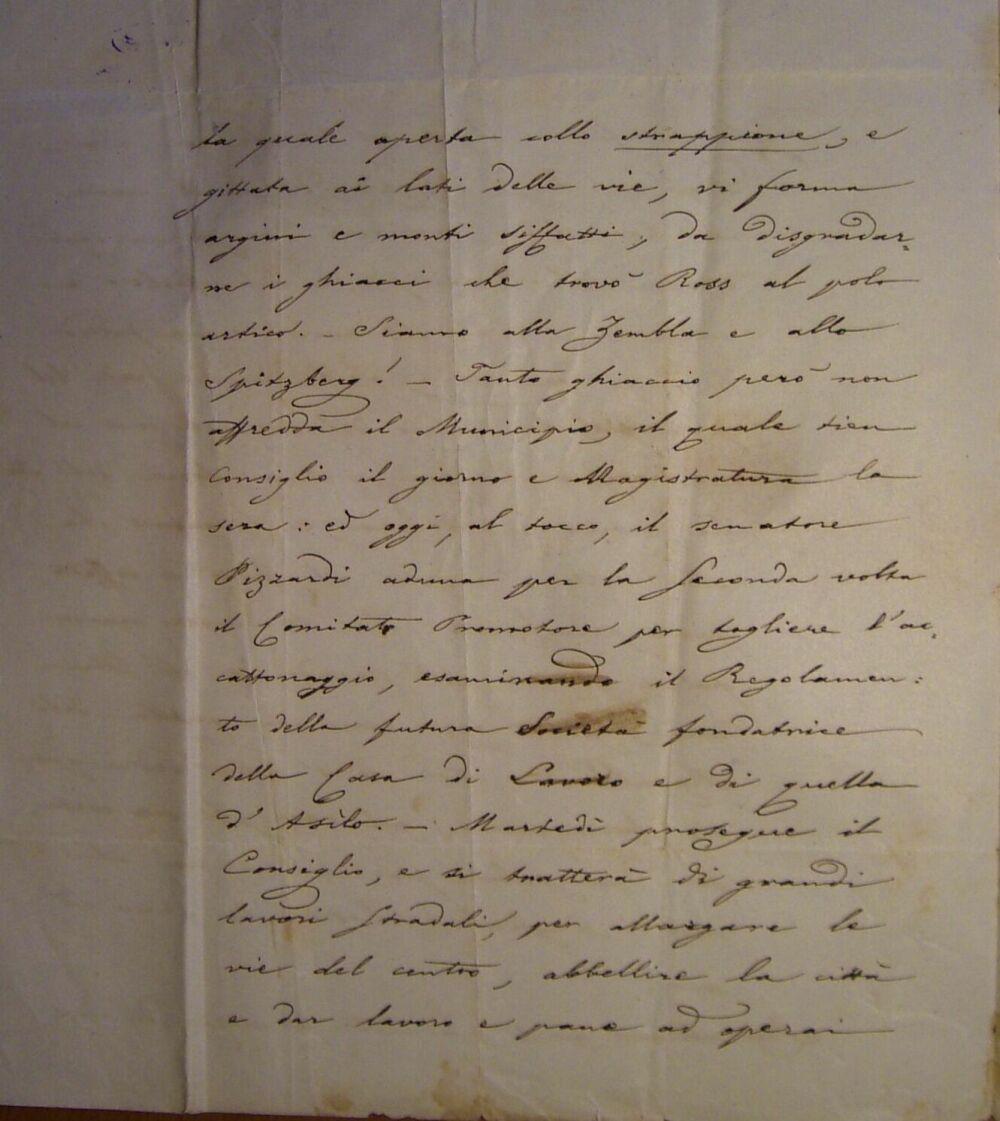 la quale aperta collo strappione, e
gittata ai lati delle vie, vi forma
argini e monti siffatti, da disgradar=
ne i ghiacci che trovò Ross al polo
artico. - Siamo alla Zembla e allo
Spitzberg! - Tanto ghiaccio però non
affredda il Municipio, il quale tien
Consiglio il giorno e Magistratura la
sera: ed oggi, al tocco, il senatore
Pizzardi aduna per la seconda volta
il Comitato Promotore per togliere l'ac=
cattonaggio, esaminando il Regolamen=
to della futura Società fondatrice
della Casa di Lavoro e di quella
d'Asilo. - Martedì prosegue il
Consiglio, e si tratterà di grandi
lavori stradali, per allargare le
vie del centro, abbellire la città
e dar lavoro e pane ad operai